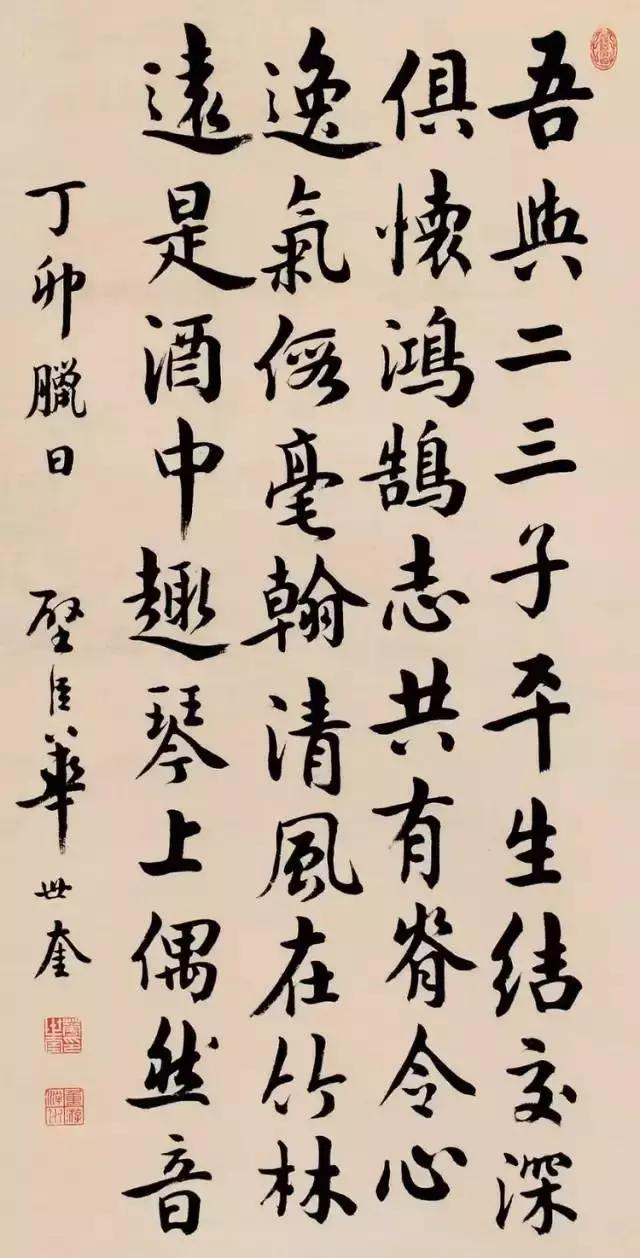 吾與二三子平生結交深
俱懷鴻鵠志共有脊令心
逸氣假毫翰清風在竹林
遠是酒中趣琴上偶然音
丁卯臘日
璧臣華世奎